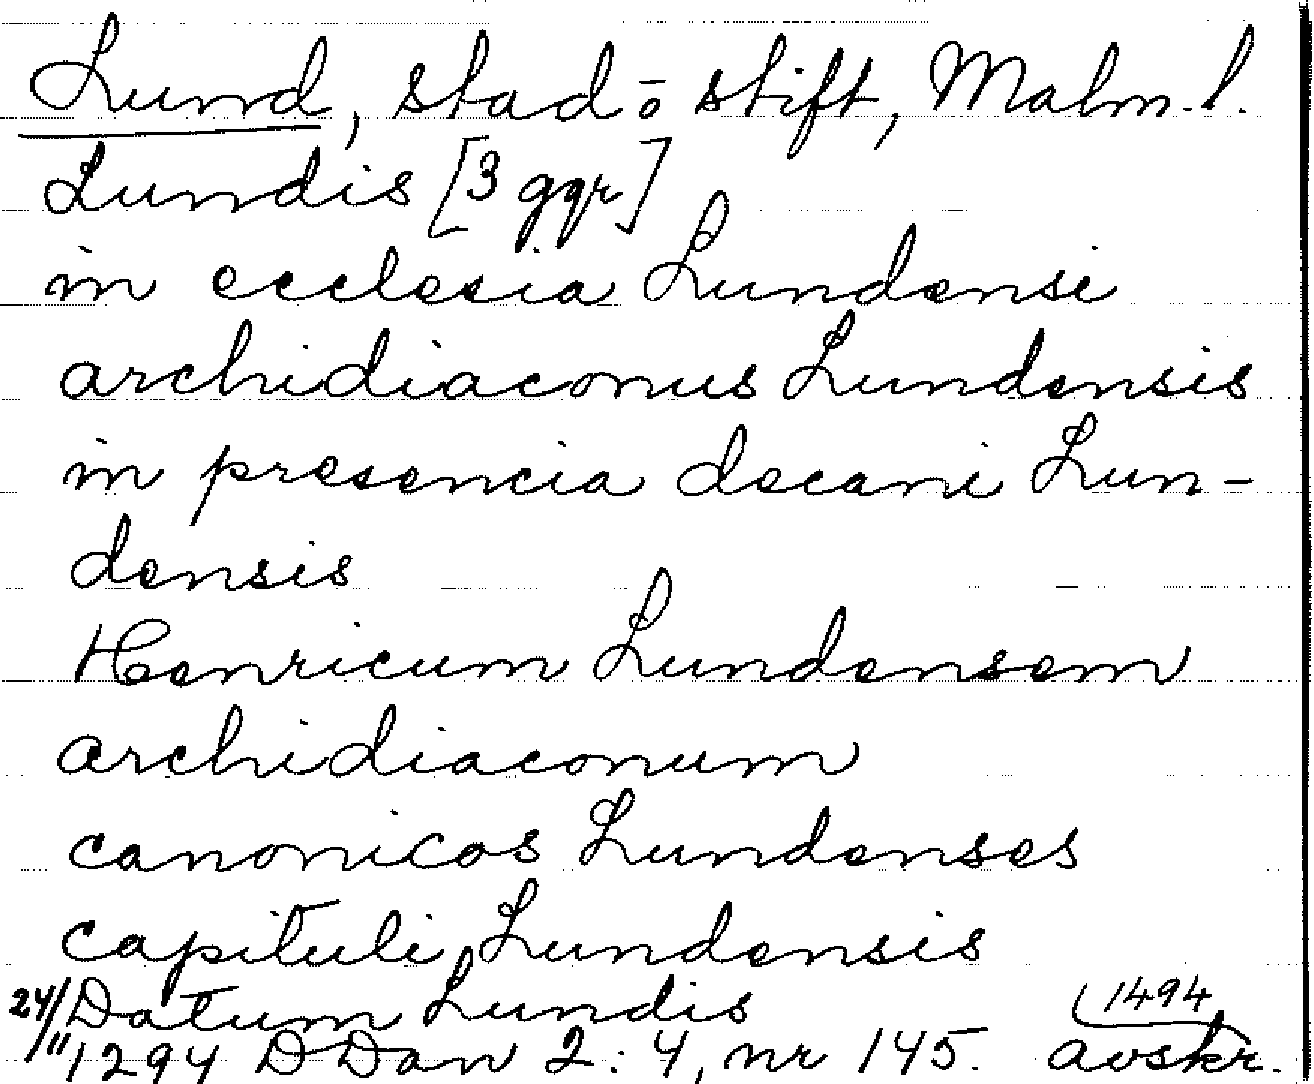 Lund, stad o stift, Malm. l.
Lundis [3 ggr]
in ecclesia Lundensi
archidiaconus Lundensis
in presencia decani Lun-
densis
Henricum Lundensem
archidiaconum
canonicos Lundenses
capituli Lundensis
Datum Lundis
24/11 1294 DDan 2:4, nr 145. 1494 avskr.